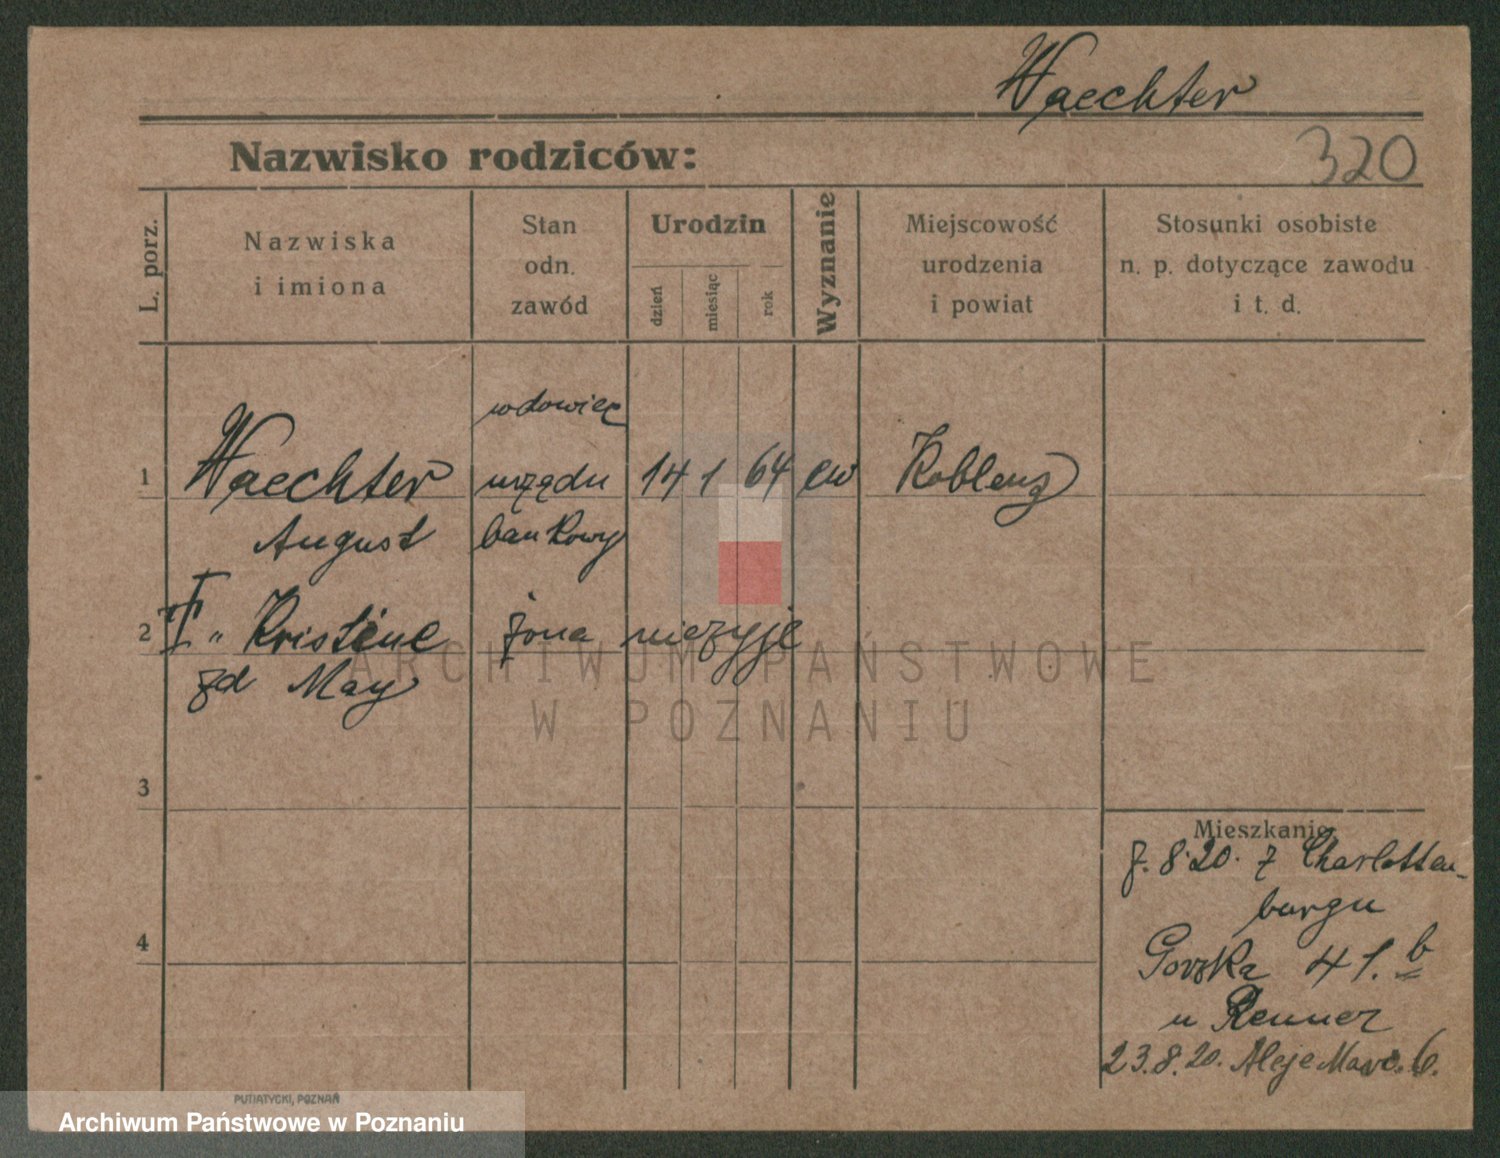 Waechter
Nazwisko rodziców:
320
L. porz.
Nazwiska
i imiona
Stan
odn.
zawód
Urodzin
dzień
miesiąc
rok
Wyznanie
Miejscowość
urodzenia
i powiat
Stosunki osobiste
n. p. dotyczące zawodu
i t. d.
wdowiec
1 Waechter urzędn 14 1 64 ew Koblenz
August bankowy
2 I " Kristine żona nieżyje
zd May
ARCHIWUM PAŃSTWOWE
W POZNANIU
3
Mieszkanie
7. 8 20. z Charlotten-
burgu
4
Gorzka 41. b
u Renner
23.8.20. Aleje Marc. 6.
PUTIATYCKI, POZNAŃ
Archiwum Państwowe w Poznaniu